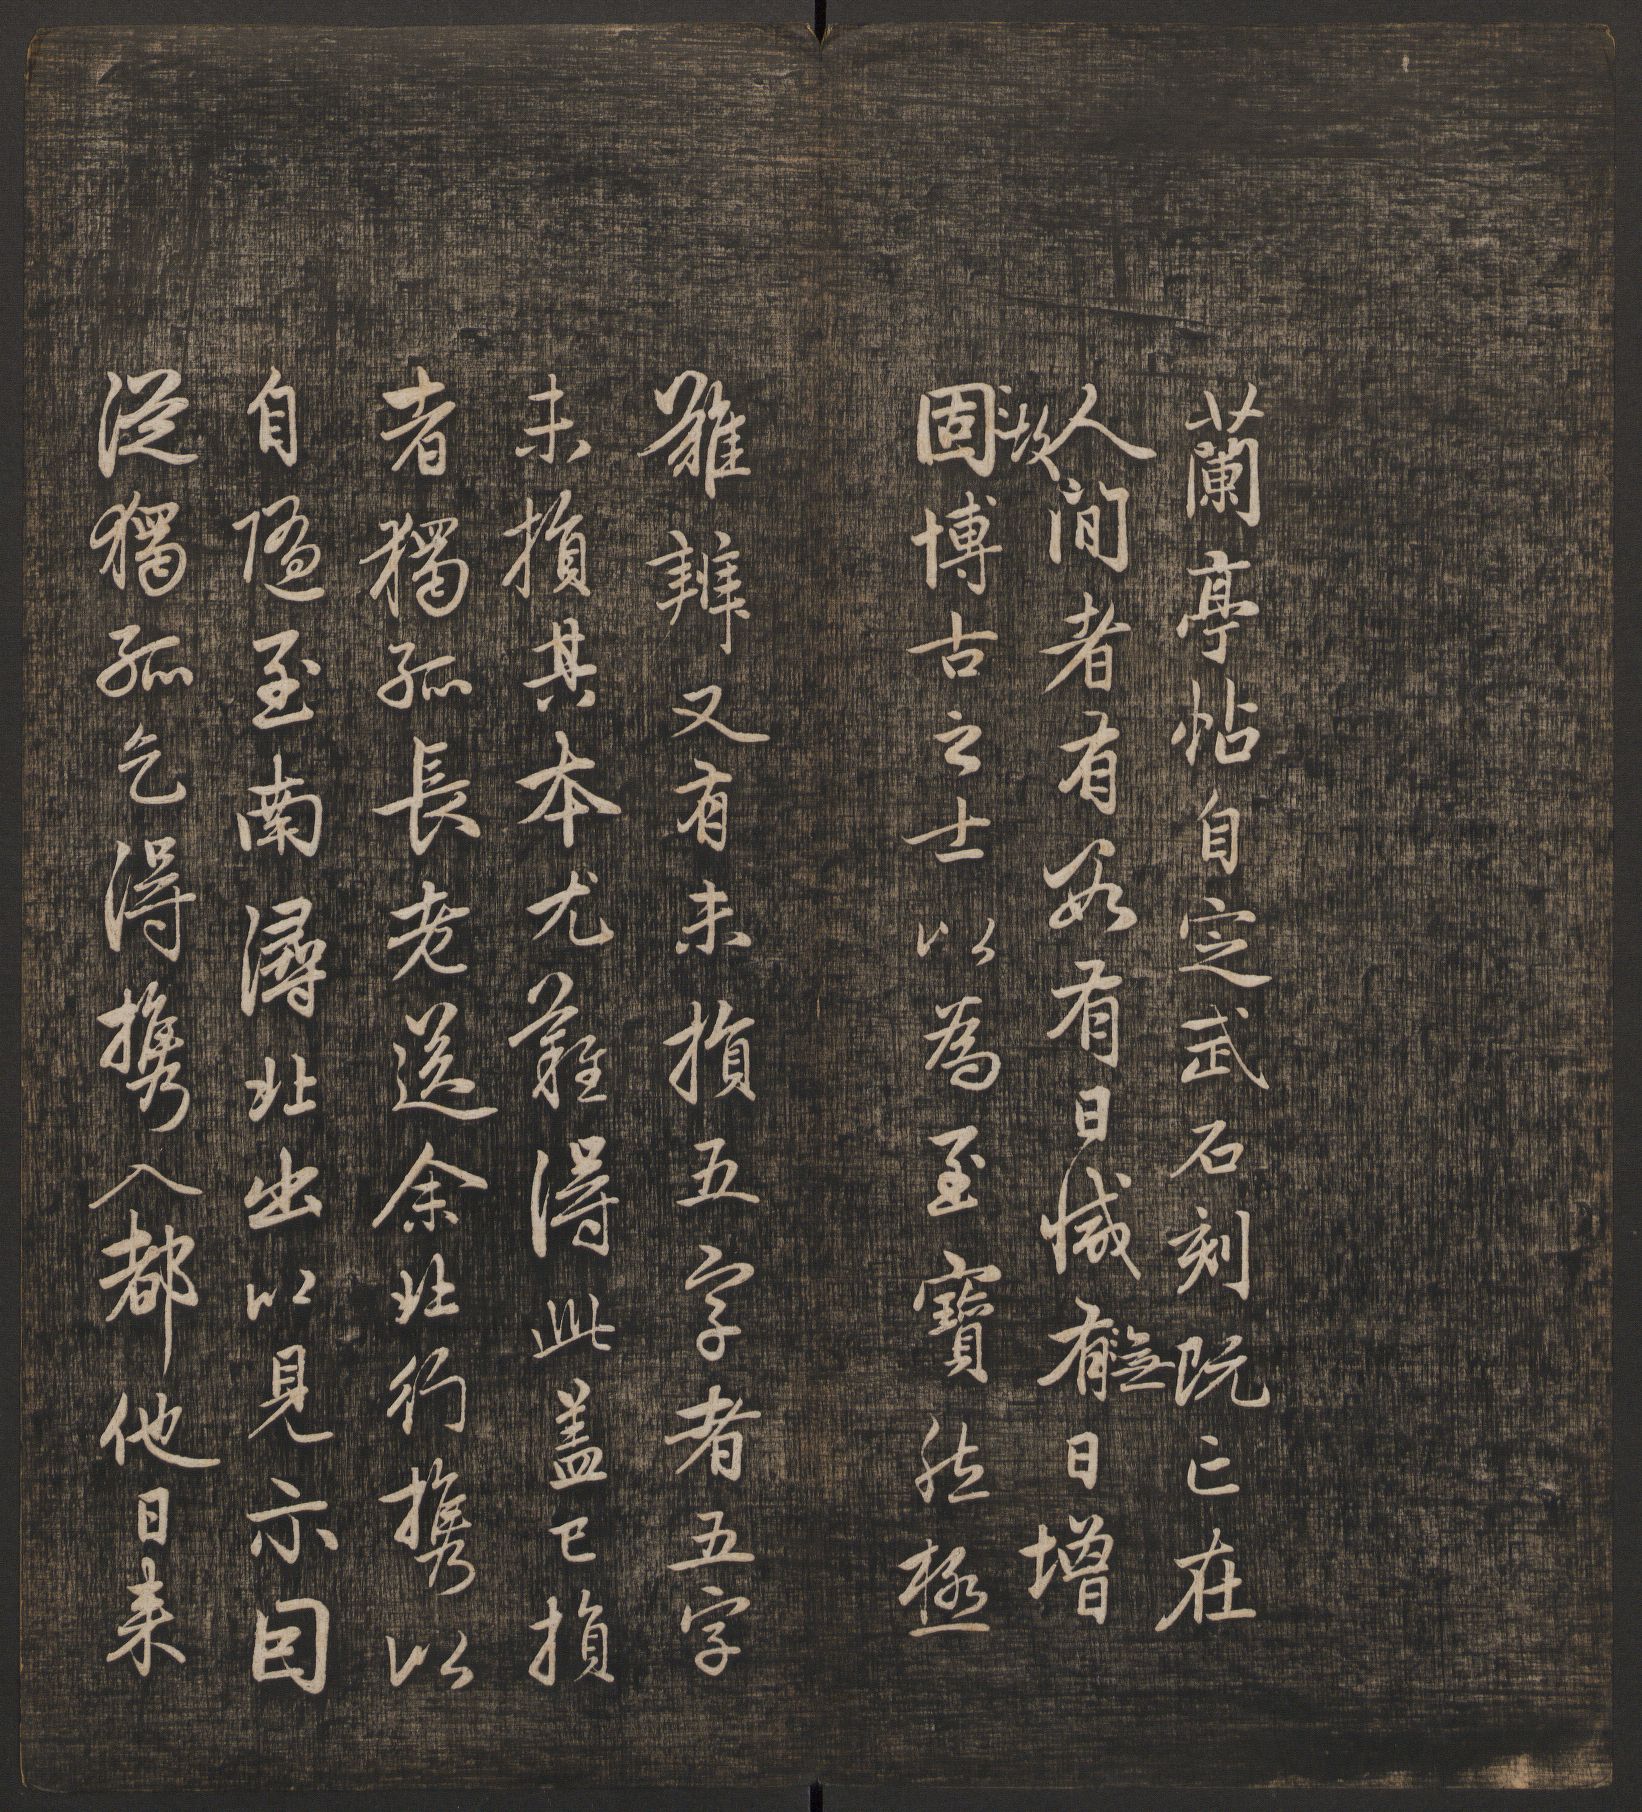 蘭亭帖自定武石刻既亡在
人間者有數有日減有無日增
固故博古之士以為至寶然極
難辨又有未損五字者五字
未損其本尤難得此盖已損
者獨孤長老送余北行攜以
自隨至南潯北出以見示因
從獨孤乞得攜入都他日来